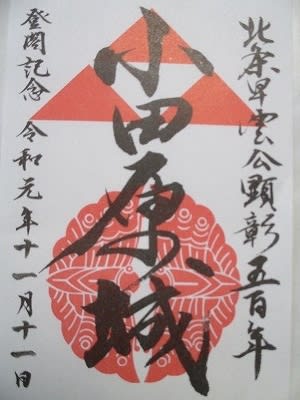 北条早雲公顕彰五百年
小田原城
登閣記念 令和元年十一月十一日